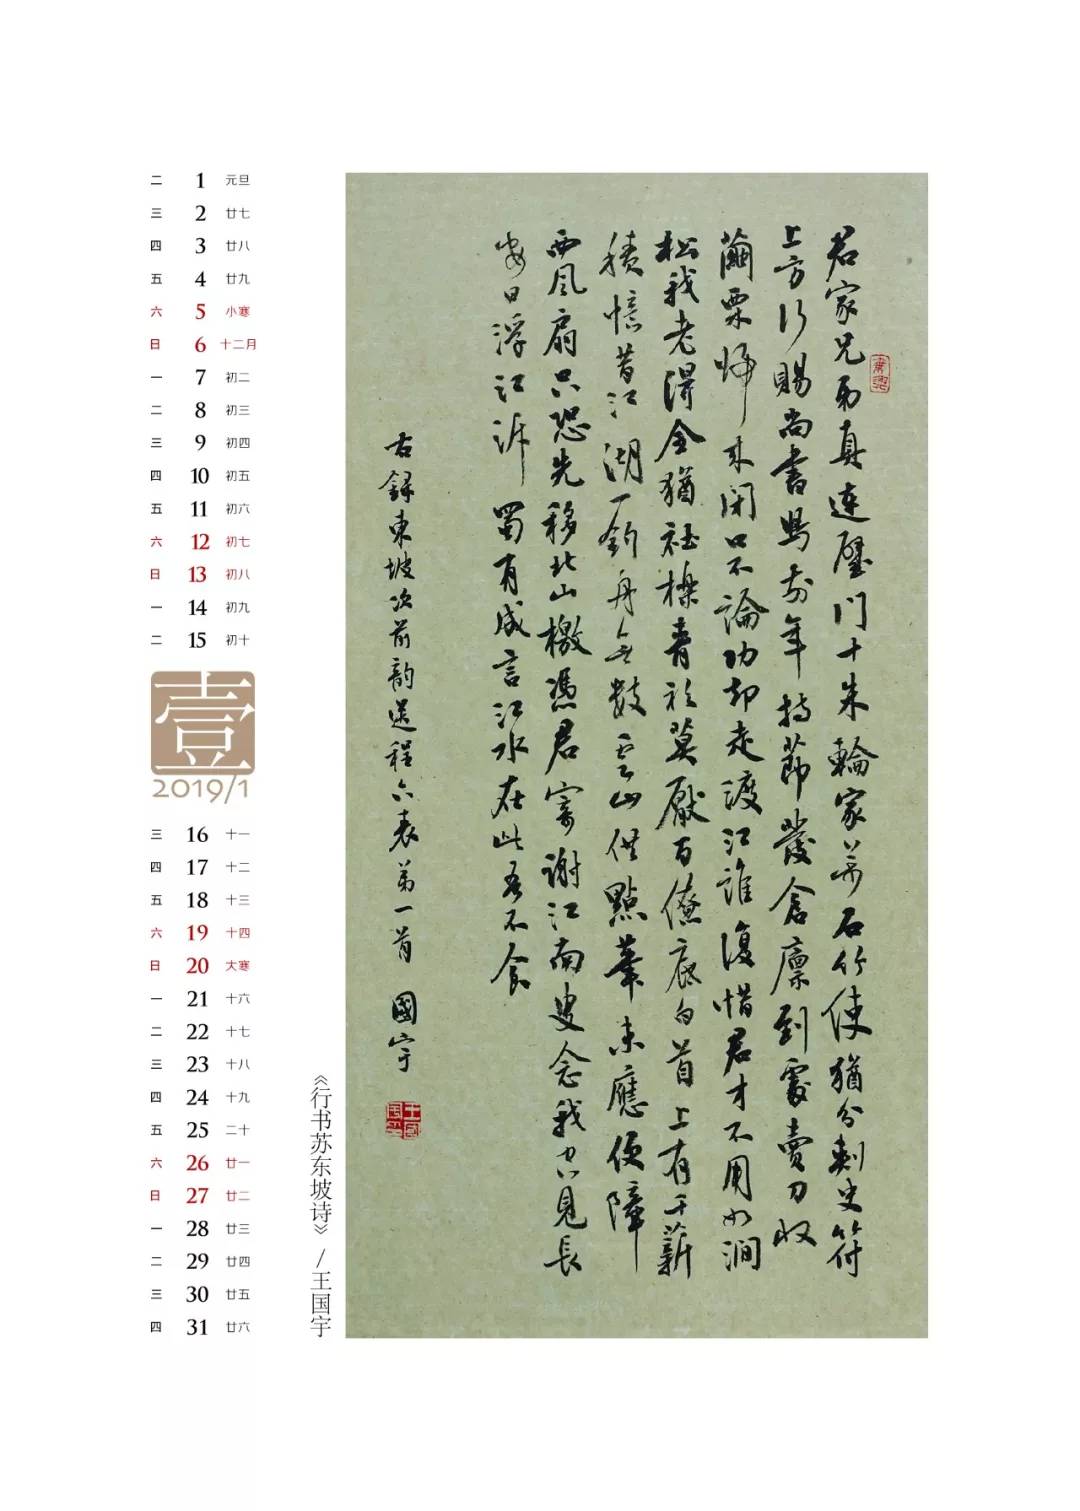 二 1 元旦
三 2 廿七
四 3 廿八
五 4 廿九
六 5 小寒
日 6 十二月
一 7 初二
二 8 初三
三 9 初四
四 10 初五
五 11 初六
六 12 初七
日 13 初八
一 14 初九
二 15 初十
壹
2019/1
三 16 十一
四 17 十二
五 18 十三
六 19 十四
日 20 大寒
一 21 十六
二 22 十七
三 23 十八
四 24 十九
五 25 二十
六 26 廿一
日 27 廿二
一 28 廿三
二 29 廿四
三 30 廿五
四 31 廿六
《行书苏东坡诗》/王国宇
君家兄弟真連璧門十朱輪家萬石竹使猶分刺史符
上方行賜尚書舄前年持節發倉廩到處賣刀收
繭栗歸來閉口不論功却走渡江誰復惜君才不用如澗
松我老得全猶社櫟青衫莫厭百僚底白首上有千薪
積憶昔江湖一釣舟無數雲山供點筆未應便障
西風扇只恐先移北山檄憑君寄謝江南叟念我空見長
安日浮江泝蜀有成言江水在此吾不食
右錄東坡次前韵送程六表弟一首 國宇